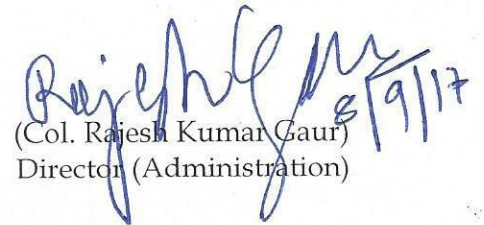 Rajesh Gaur
8/9/17
(Col. Rajesh Kumar Gaur)
Director (Administration)